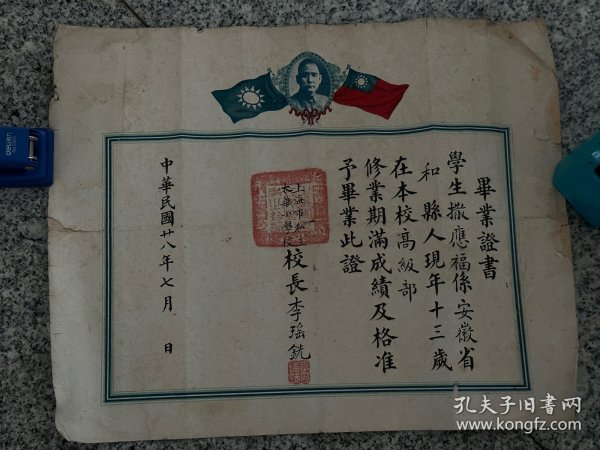 畢業證書
學生撒應福係安徽省
和縣人現年十三歲
在本校高級部
修業期滿成績及格准
予畢業此證
上海市私立
小學校
校長李瑤銑
中華民國廿八年七月 日
deli
孔夫子旧书网
www.kongfz.com